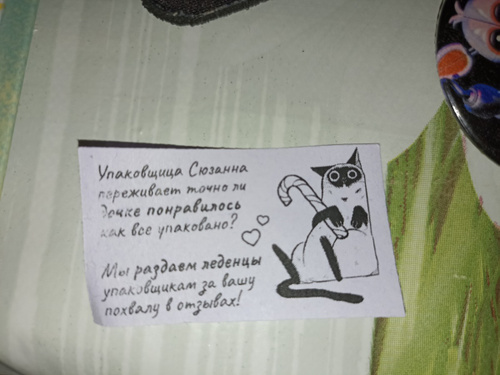 Упаковщица Сюзанна
переживает точно ли
дочке понравилось
как все упаковано?
Мы раздаем леденцы
упаковщикам за вашу
похвалу в отзывах!